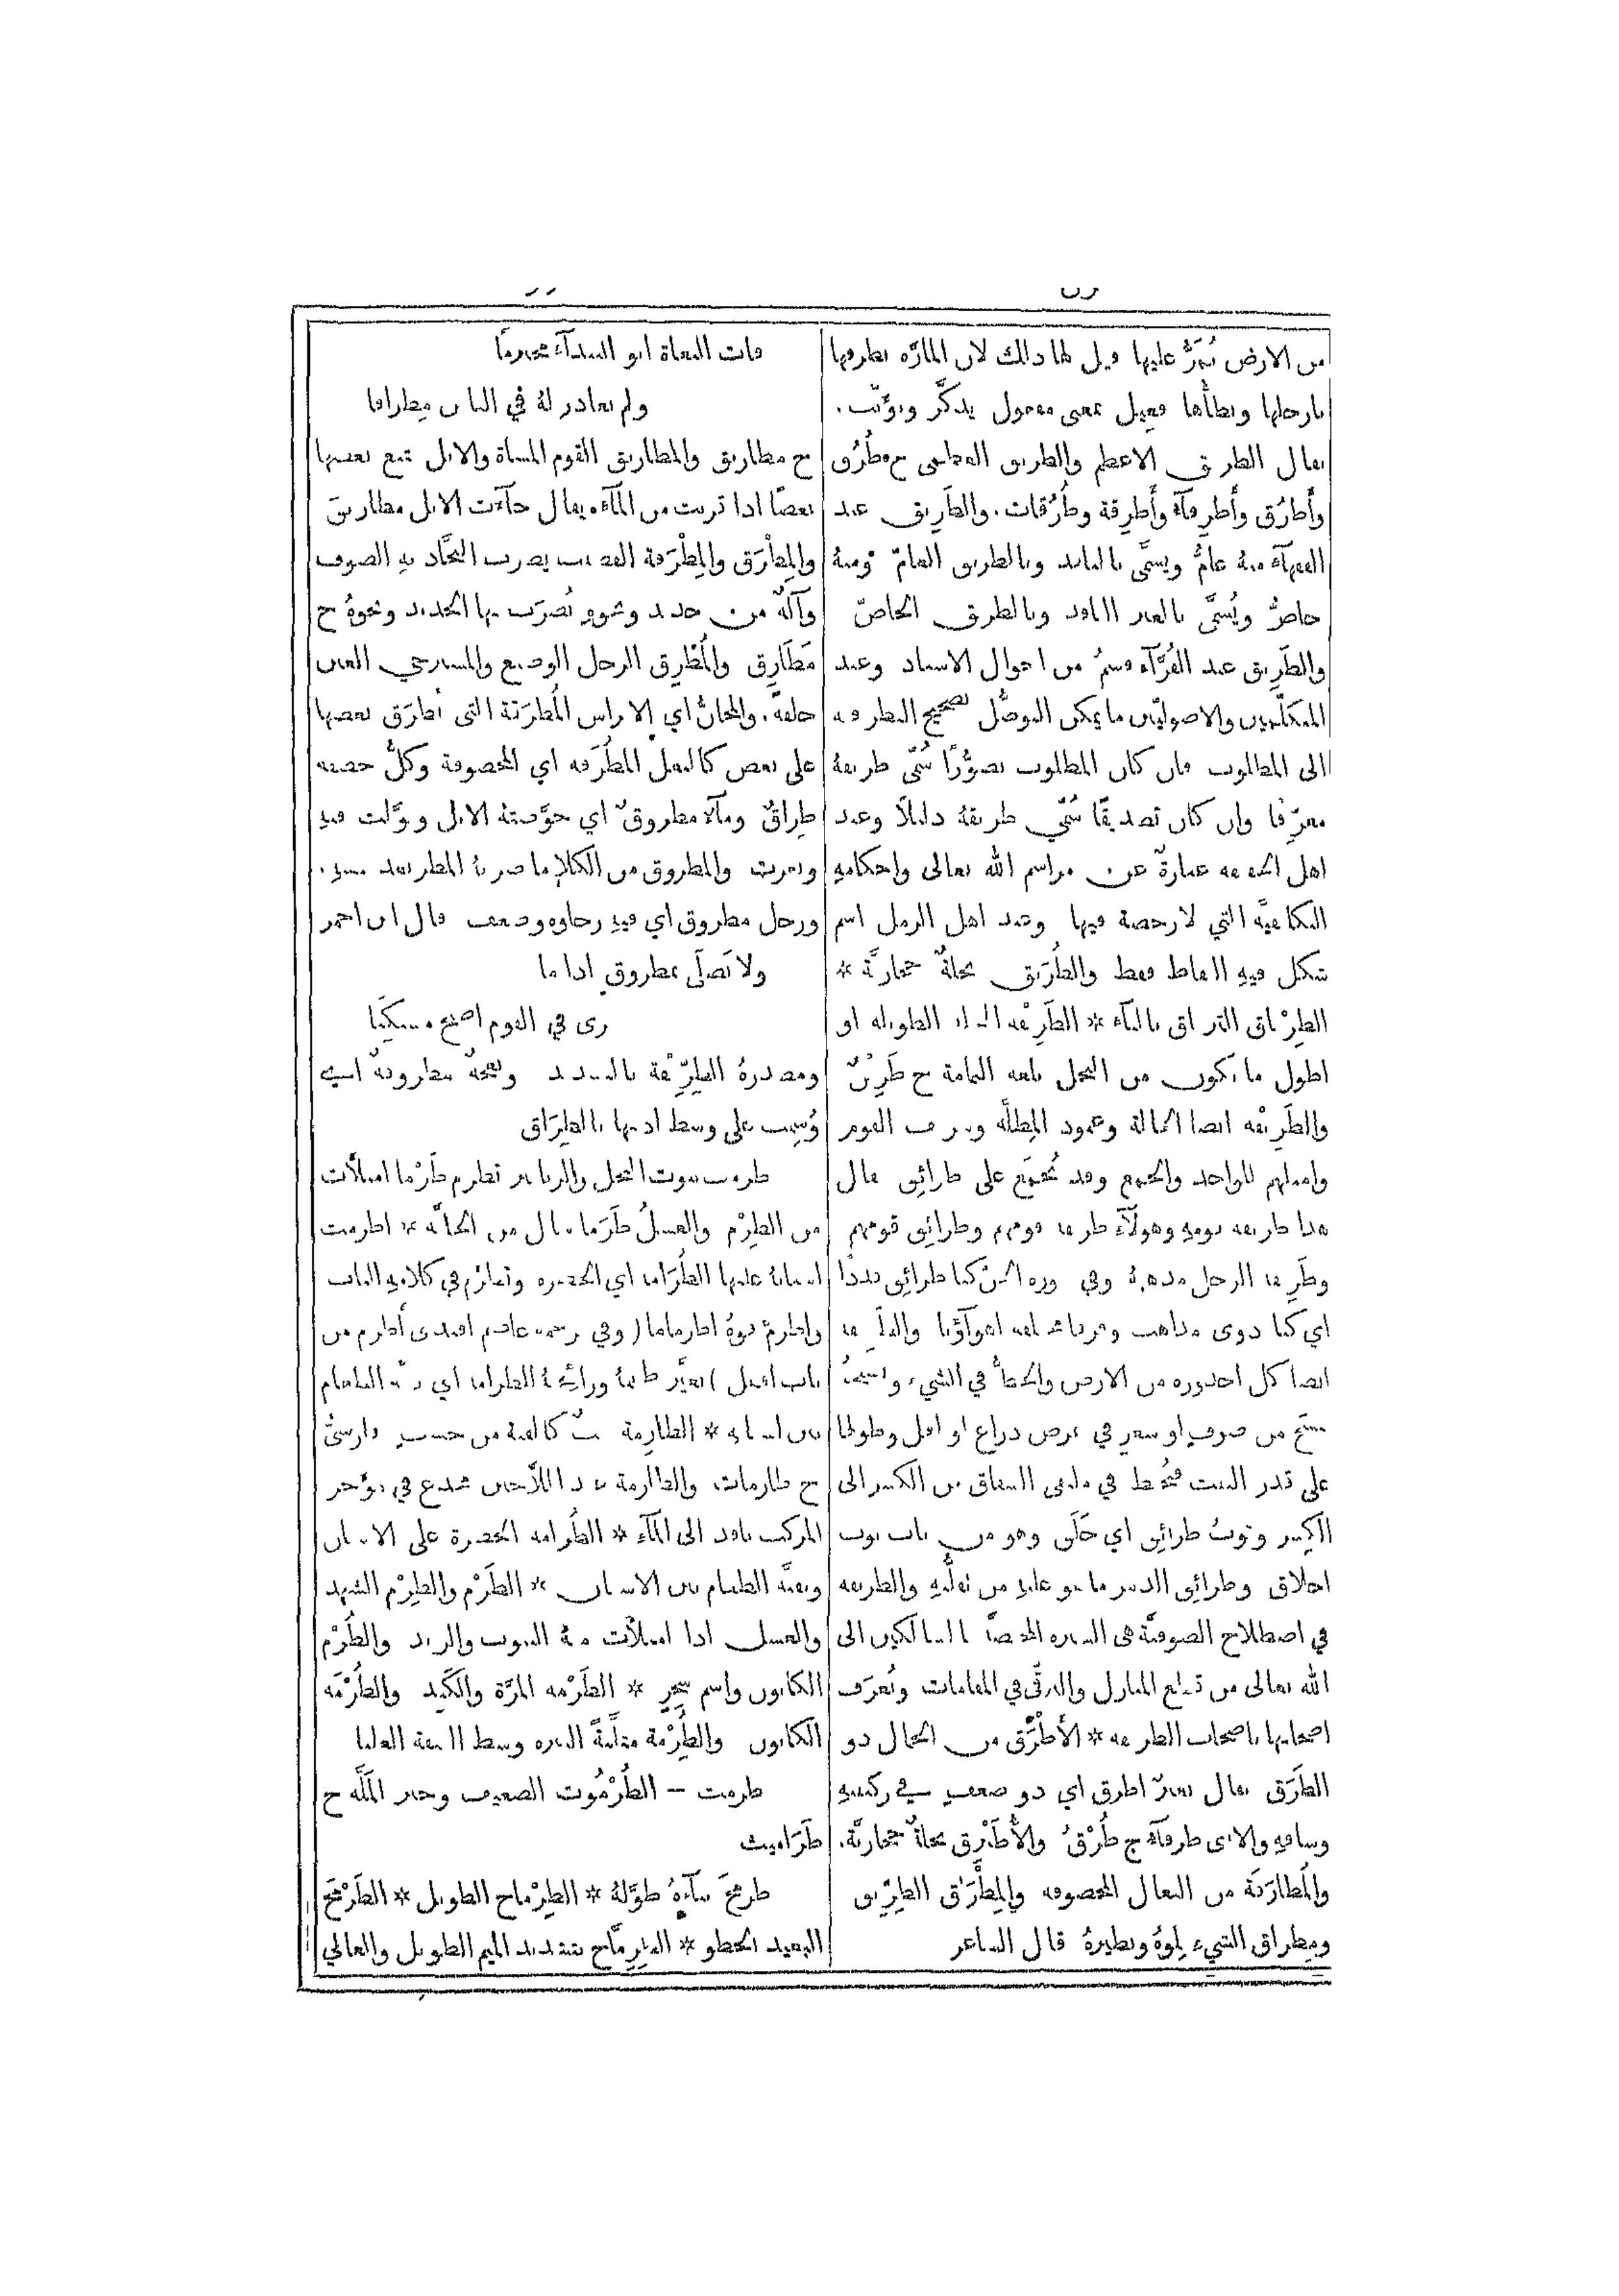 من الارض يُمَرُّ عليها قيل لها ذلك لان المارّة تطرقها
بارجلها وتطأها فعيل بمعنى مفعول يذكَّر ويؤنَّث.
يقال الطريق الاعظم والطريق العظمى ج طُرُق
وأَطرُق وأَطرِقآءُ وأَطرِقة وطُرُقات. والطَرِيق عند
الفقهآءِ منهُ عامٌّ ويسمَّى بالنافذ وبالطريق العامّ ومنهُ
خاصٌّ ويُسمَّى بالغير النافذ وبالطريق الخاصّ
والطَرِيق عند القُرَّآء قسمٌ من احوال الاسناد وعند
المتكلّمين والاصوليّين ما يمكن التوصُّل بصحيح النظر فيه
الى المطلوب فان كان المطلوب تصوُّرًا سُمّي طريقهُ
معرّفًا وان كان تصديقًا سُمّي طريقهُ دليلاً وعند
اهل الحقيقة عبارةٌ عن مراسم الله تعالى واحكامهِ
التكليفيَّة التي لا رخصة فيها وعند اهل الرمل اسم
شكل فيهِ النقاط فقط والطُرَيق نخلةٌ حجازيَّة *
الطِرْياق الترياق بالتآء * الطَرِيْقة النخلة الطويلة او
اطول ما يكون من النخل بلغة اليمامة ج طَرِيقٌ
والطَرِيْقة ايضا الحالة وعمود المِظلَّة وشريف القوم
وامثلهم للواحد والجمع وقد تُجمَع على طرائِق يقال
هذا طريقة قومهِ وهولآءِ طريقة قومهم وطرائِق قومهم
وطَرِيقة الرجل مذهبهُ وفي سورة الجنّ كنا طرائِق قددًا
اي كنا ذوي مذاهب وفرقا مختلفة اهوآؤُنا والطَرِيقة
ايضا كل احدورة من الارض والخطُّ في الشيء ونسيجةٌ
تنسَج من صوفٍ او شعرٍ في عرض ذراع او اقل وطولها
على قدر البيت فتُخيَّط في ملتقى الشقاق من الكسر الى
الكِسر وثوبٌ طرائِق اي خَلَق وهو من باب ثوب
اخلاق وطرائِق الدهر ما هو عليهِ من تقلُّبهِ والطريقة
في اصطلاح الصوفيَّة هي السيرة المختصَّة بالسالكين الى
الله تعالى من قطع المنازل والترقّي في المقامات وتُعرَف
اصحابها باصحاب الطريقة * الأَطْرَق من الجمال ذو
الطَرَق يقال بعيرٌ اطرق اي ذو ضعف في ركبتيهِ
وساقهِ والانثى طرقآءُ ج طُرْقٌ والأُطَيْرِق نخلةٌ حجازيَّة.
والمُطارَقَة من النعال المخصوفة والمِطْرَاق الطِرّيق
ومِطراق الشيء تِلوهُ ونظيرهُ قال الشاعر
فات البغاة ابو البيدآء محترمًا
ولم يغادر لهُ في الناس مِطراقا
ج مطاريق والمطاريق القوم المشاة والابل تتبع بعضها
بعضًا اذا قربت من المآءِ. يقال جآءَت الابل مطاريقَ
والمِطْرَق والمِطْرَقة القضيب يضرب النجَّاد بهِ الصوف
وآلةٌ من حديد ونحوهِ يُضرَب بها الحديد ونحوهُ ج
مَطَارِق والمُطْرِق الرجل الوضيع والمسترخي العين
خلقةً. والمجانُّ اي الاتراس المُطرَقة التي اطرَق بعضها
على بعض كالنعل المُطْرَقة اي المخصوفة وكلُّ خصفة
طِراقٌ ومآءٌ مطروقٌ اي خوَّضتهُ الابل وبوَّلت فيهِ
وبعرت والمطروق من الكلإِ ما ضربهُ المطر بعد يبسهِ.
ورجل مطروق اي فيهِ رخاوة وضعف قال ابن احمر
ولا تَصلَى بمطروقٍ اذا ما
سرى في القوم اصبح مستكينا
ومصدرهُ الطِرِّيقة بالتشديد ونعجةٌ مطروقةٌ اي
وُسِمت على وسط اذنها بالطِرَاق
طرمت بيوت النحل والزنابير تطرم طَرْما امتلأَت
من الطِرْم والعسلُ طَرَما سال من الخليَّة * اطرمت
اسنانهُ علتها الطُرَامة اي الخضرة وتطرَّم في كلامهِ التاث
واطرمَّ فوهُ اطرماما (وفي ترجمة عاصم افندي أَطرم من
باب افعل) تغيَّر طعمهُ ورائِحةُ الطرامة اي بقيَّة الطعام
بين اسنانهِ * الطارِمة بيتٌ كالقبة من خشب فارسيٌّ
ج طارمات والطارمة عند الملاَّحين مخدع في مؤَخر
المركب نافذ الى المآءِ * الطُرامة الخضرة على الاسنان
وبقيَّة الطعام بين الاسنان * الطَرْم والطِرْم الشهد
والعسل اذا امتلأَت منهُ البيوت والزبد والطُرْم
الكانون واسم شجرٍ * الطَرْمة المرَّة والكَبِد والطُرْمَة
الكانون والطُرْمة مثلَّثةً النبرة وسط الشفة العليا
طرمت – الطُرْمُوت الضعيف وخبز المَلَّة ج
طَرَاميث
طرمحَ بنآءَهُ طوَّلهُ * الطِرْماح الطويل * الطَرْمَح
البعيد الخطو * الطِرِمَّاح بتشديد الميم الطويل والعالي